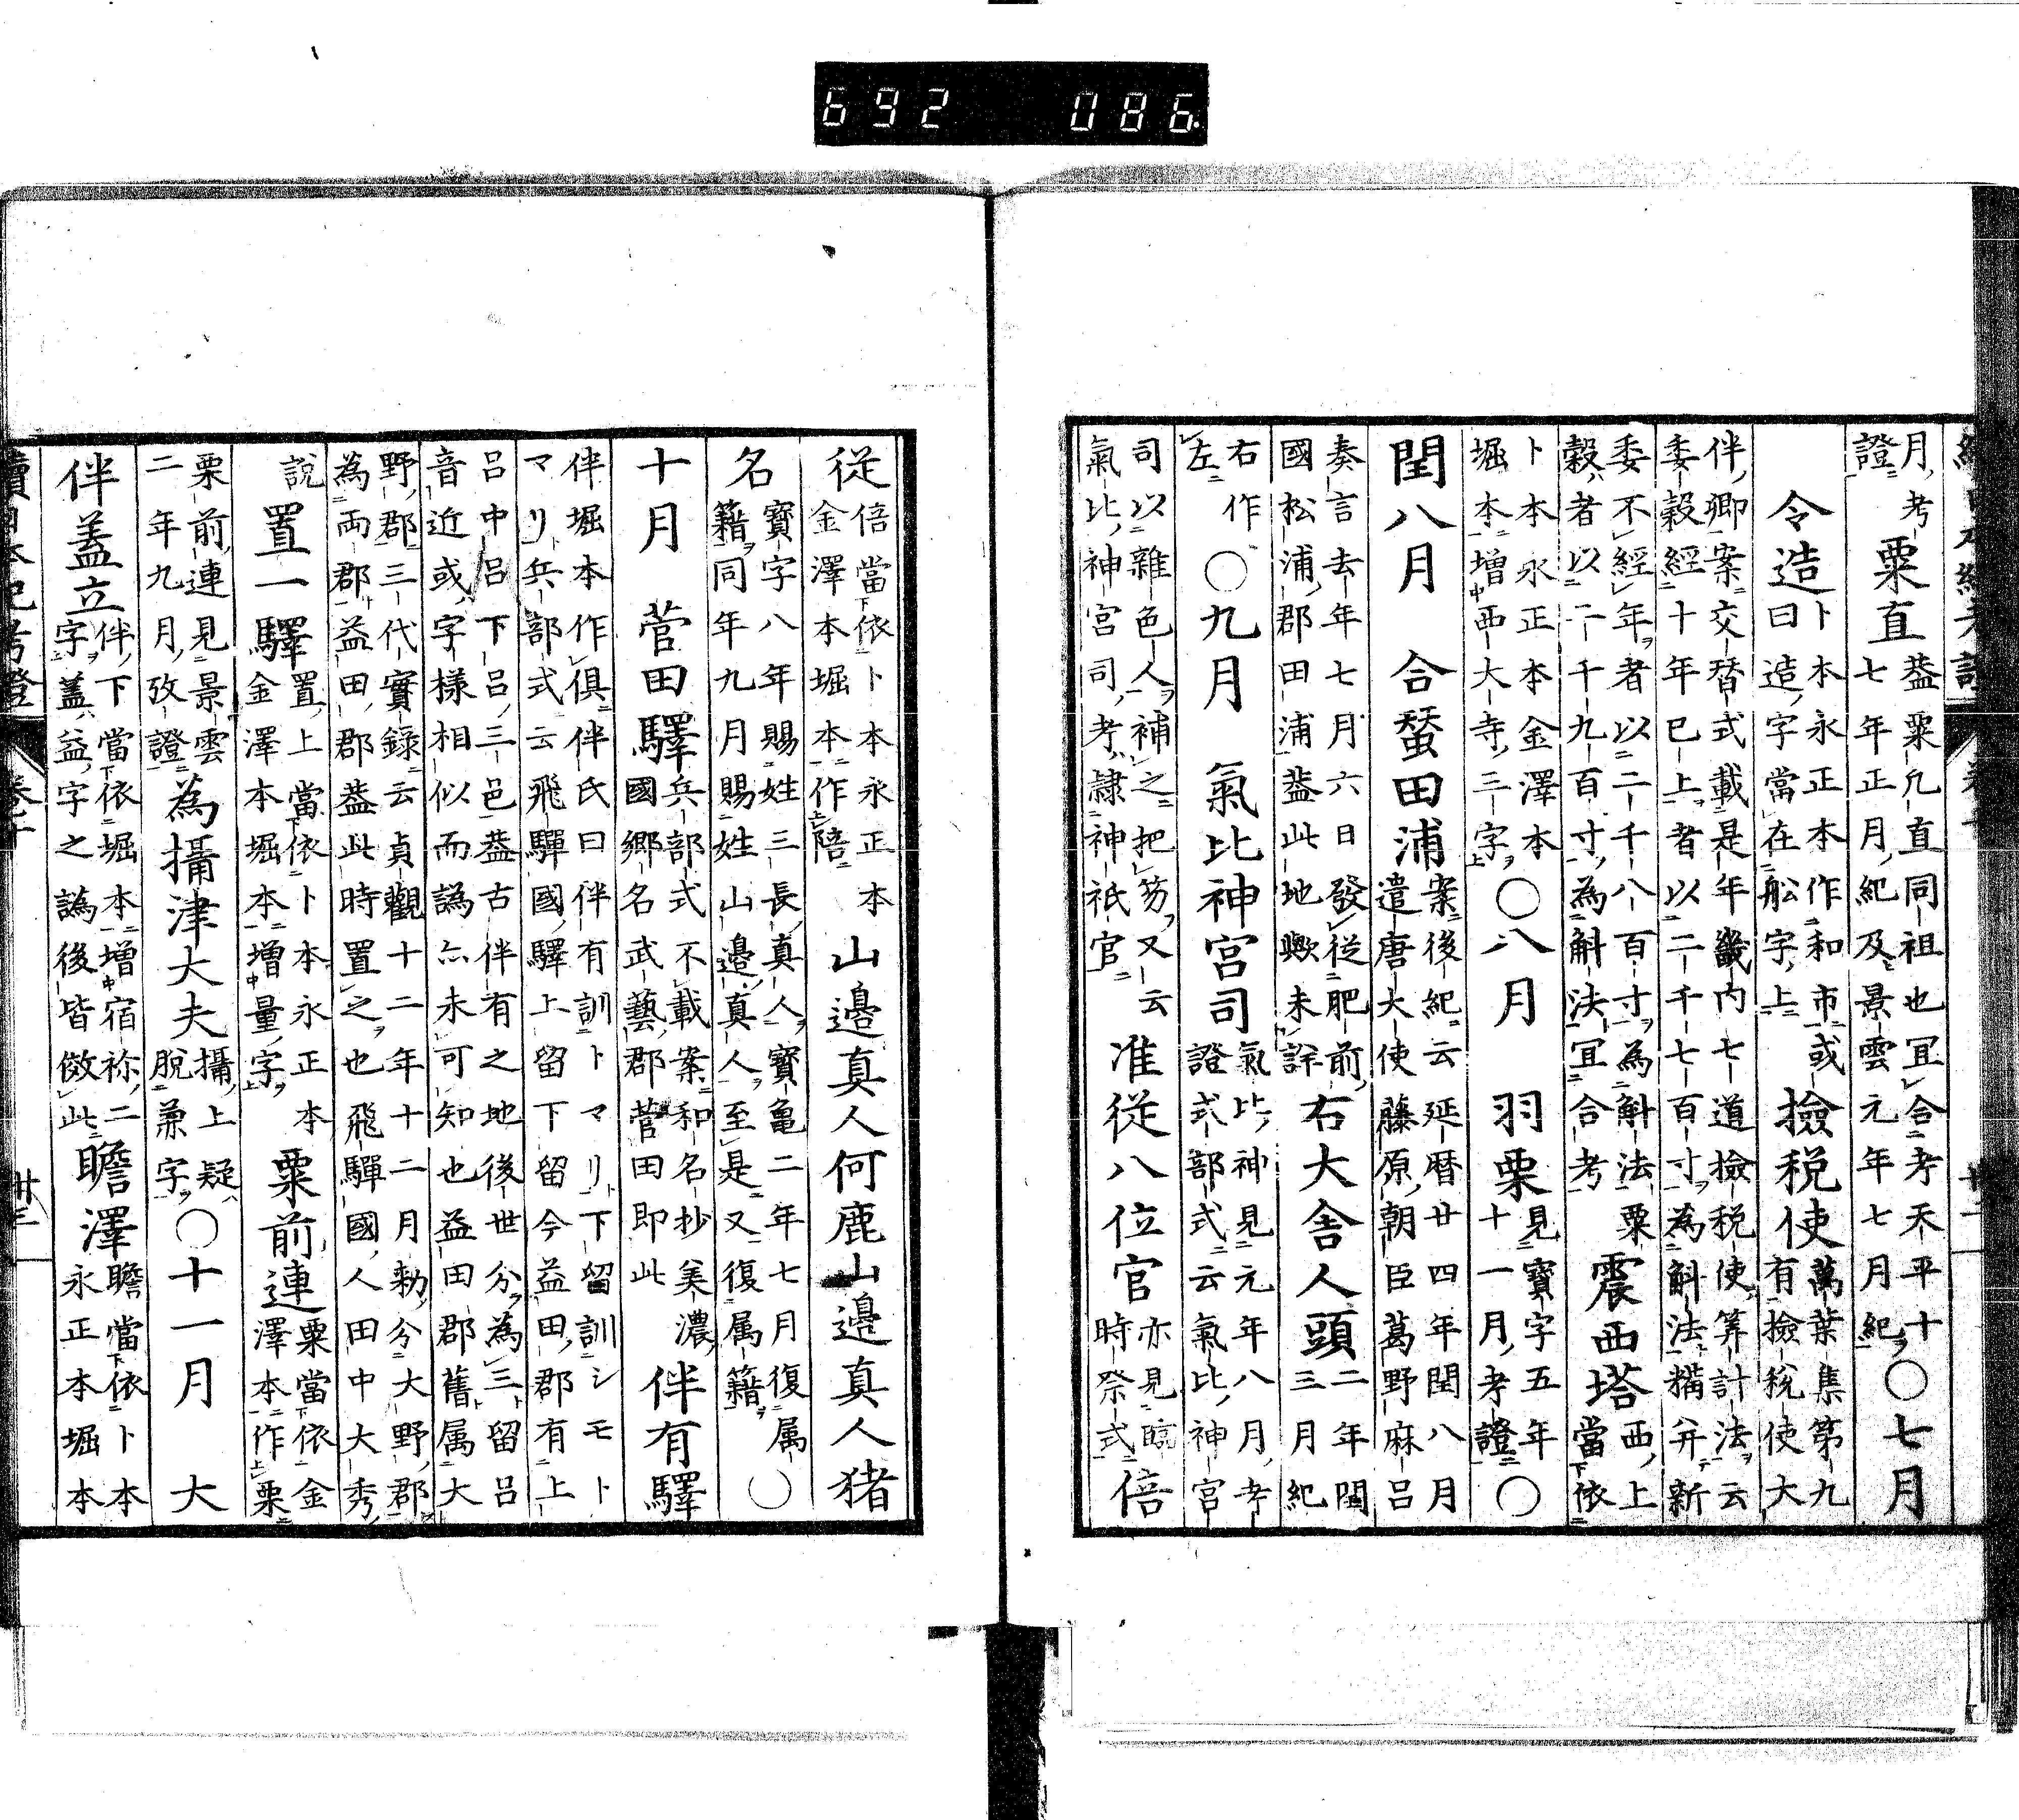 692 086
月考證二 粟直 葢粟凡直同祖也宜合考天平十七年正月紀及景雲元年七月紀 〇七月
令造 卜本永正本作和市或曰造字當在舩字上 撿税使 萬葉集第九有撿税使大
伴卿案交替式載是年畿内七道撿税使筭計法云委穀經十年已上者以二千七百寸為斛法糒并新
委不經年者以二千八百寸為斛法粟穀者以二千九百寸為斛法宜合考 震西塔 西上當依
卜本永正本金澤本堀本増西大寺三字 〇八月 羽栗 見寳字五年十一月考證 〇
閏八月 合蝅田浦 案後紀云延暦廿四年閏八月遣唐大使藤原朝臣葛野麻呂
奏言去年七月六日發從肥前國松浦郡田浦葢此地歟未詳 右大舎人頭 二年閏三月紀
右作左 〇九月 氣比神宮司 氣比神見元年八月考證式部式云氣比神宮
司以雜色人補之把笏又云氣比神宮司考隷神祇官 准從八位官 亦見臨時祭式 倍
從 倍當依卜本永正本金澤本堀本作陪 山邊真人何鹿山邊真人猪
名 寳字八年賜姓三長真人寳亀二年七月復属籍同年九月賜姓山邊真人至是又復属籍 〇
十月 菅田驛 兵部式不載案和名抄美濃國郷名武藝郡菅田即此 伴有驛
伴堀本作俱伴氏曰伴有訓卜マリ下留訓シモトマリ兵部式云飛驒國驛上留下留今益田郡有上
呂中呂下呂三邑葢古伴有之地後世分為三留呂音近或字様相似而譌亦未可知也益田郡舊属大
野郡三代實録云貞觀十二年十二月勅分大野郡為両郡益田郡葢此時置之也飛驒國人田中大秀
説 置一驛 置上當依卜本永正本金澤本堀本増量字 粟前連 粟當依金澤本作栗
栗前連見景雲二年九月攷證 為攝津大夫 攝上疑脱兼字 〇十一月 大
伴葢立 伴下當依堀本増宿祢二字葢益字之譌後皆傚此 瞻澤 瞻當依卜本永正本堀本
續日本紀考證 卷十